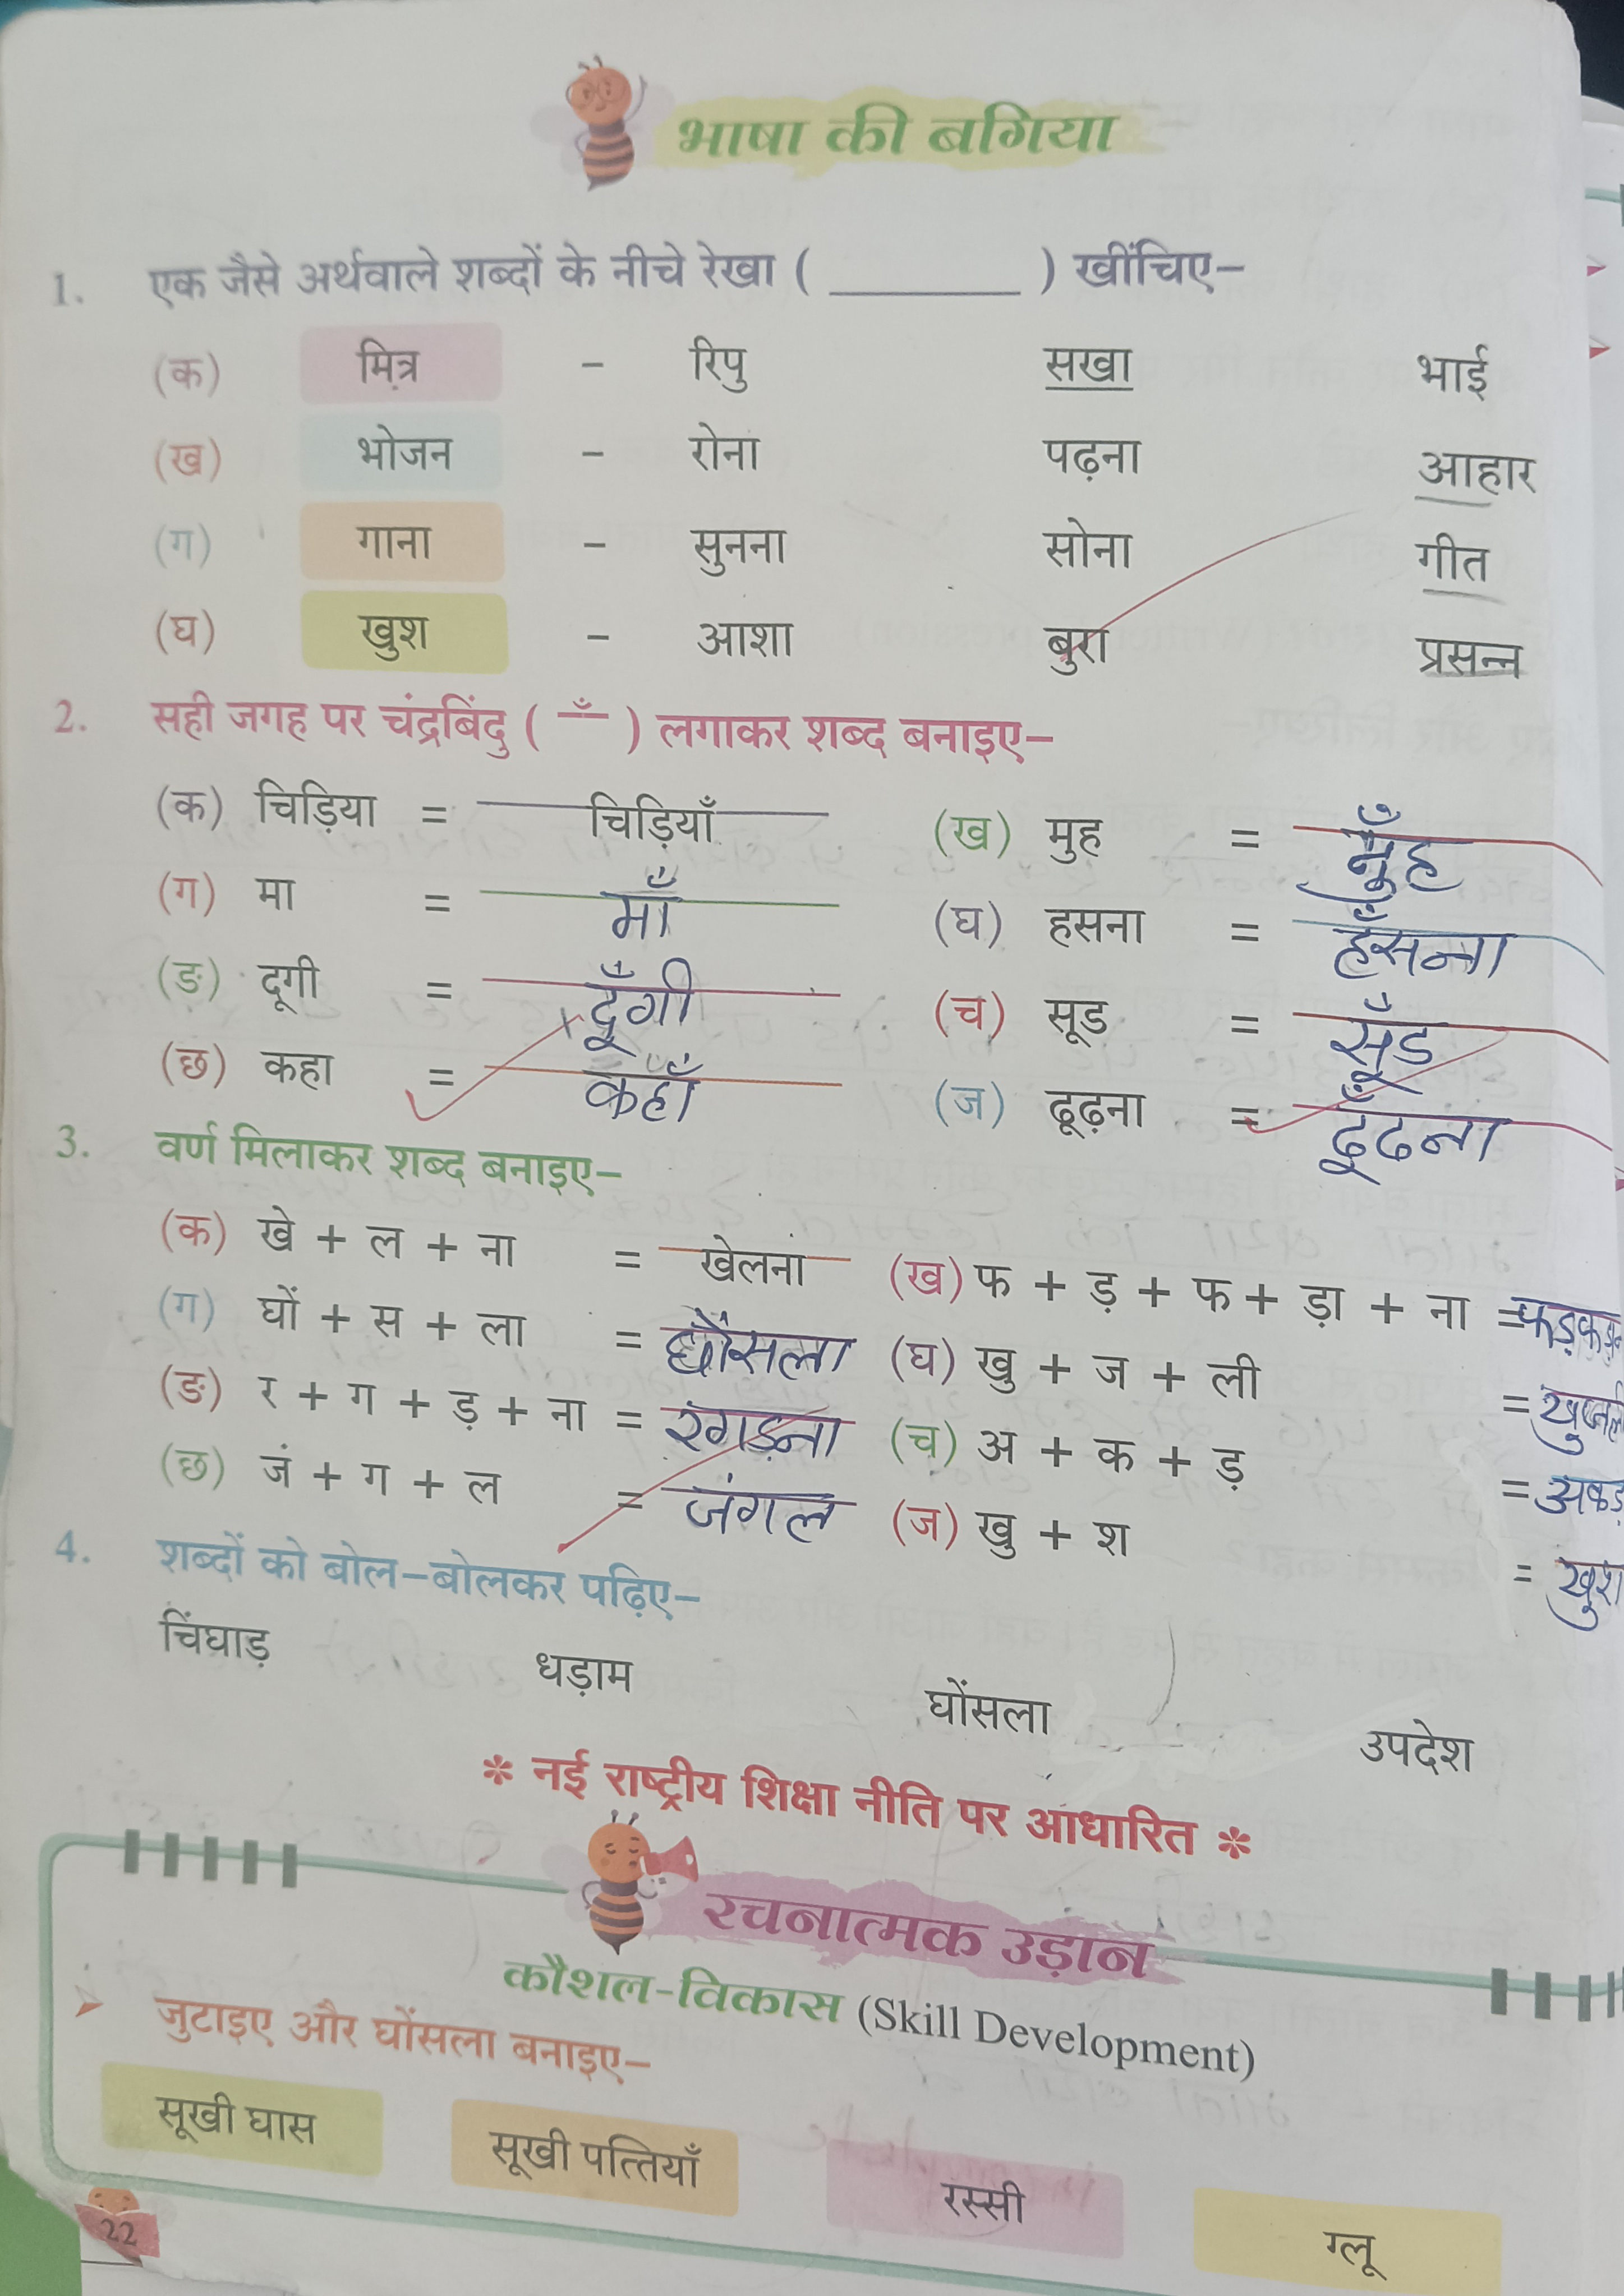 भाषा की बगिया
1. एक जैसे अर्थवाले शब्दों के नीचे रेखा ( ________ ) खींचिए–
(क) मित्र – रिपु सखा भाई
(ख) भोजन – रोना पढ़ना आहार
(ग) गाना – सुनना सोना गीत
(घ) खुश – आशा बुरा प्रसन्न
2. सही जगह पर चंद्रबिंदु ( ँ ) लगाकर शब्द बनाइए–
(क) चिड़िया = चिड़ियाँ (ख) मुह = मुँह
(ग) मा = माँ (घ) हसना = हँसना
(ङ) दूगी = दूँगी (च) सूड = सूँड
(छ) कहा = कहाँ (ज) ढूढ़ना = ढूँढना
3. वर्ण मिलाकर शब्द बनाइए–
(क) खे + ल + ना = खेलना (ख) फ + ड़ + फ + ड़ा + ना =
(ग) घों + स + ला = घोंसला (घ) खु + ज + ली =
(ङ) र + ग + ड़ + ना = रगड़ना (च) अ + क + ड़ = अकड़
(छ) जं + ग + ल = जंगल (ज) खु + श = खुश
4. शब्दों को बोल-बोलकर पढ़िए–
चिंघाड़ धड़ाम घोंसला उपदेश
* नई राष्ट्रीय शिक्षा नीति पर आधारित *
रचनात्मक उड़ान
कौशल-विकास (Skill Development)
जुटाइए और घोंसला बनाइए–
सूखी घास सूखी पत्तियाँ रस्सी ग्लू
22